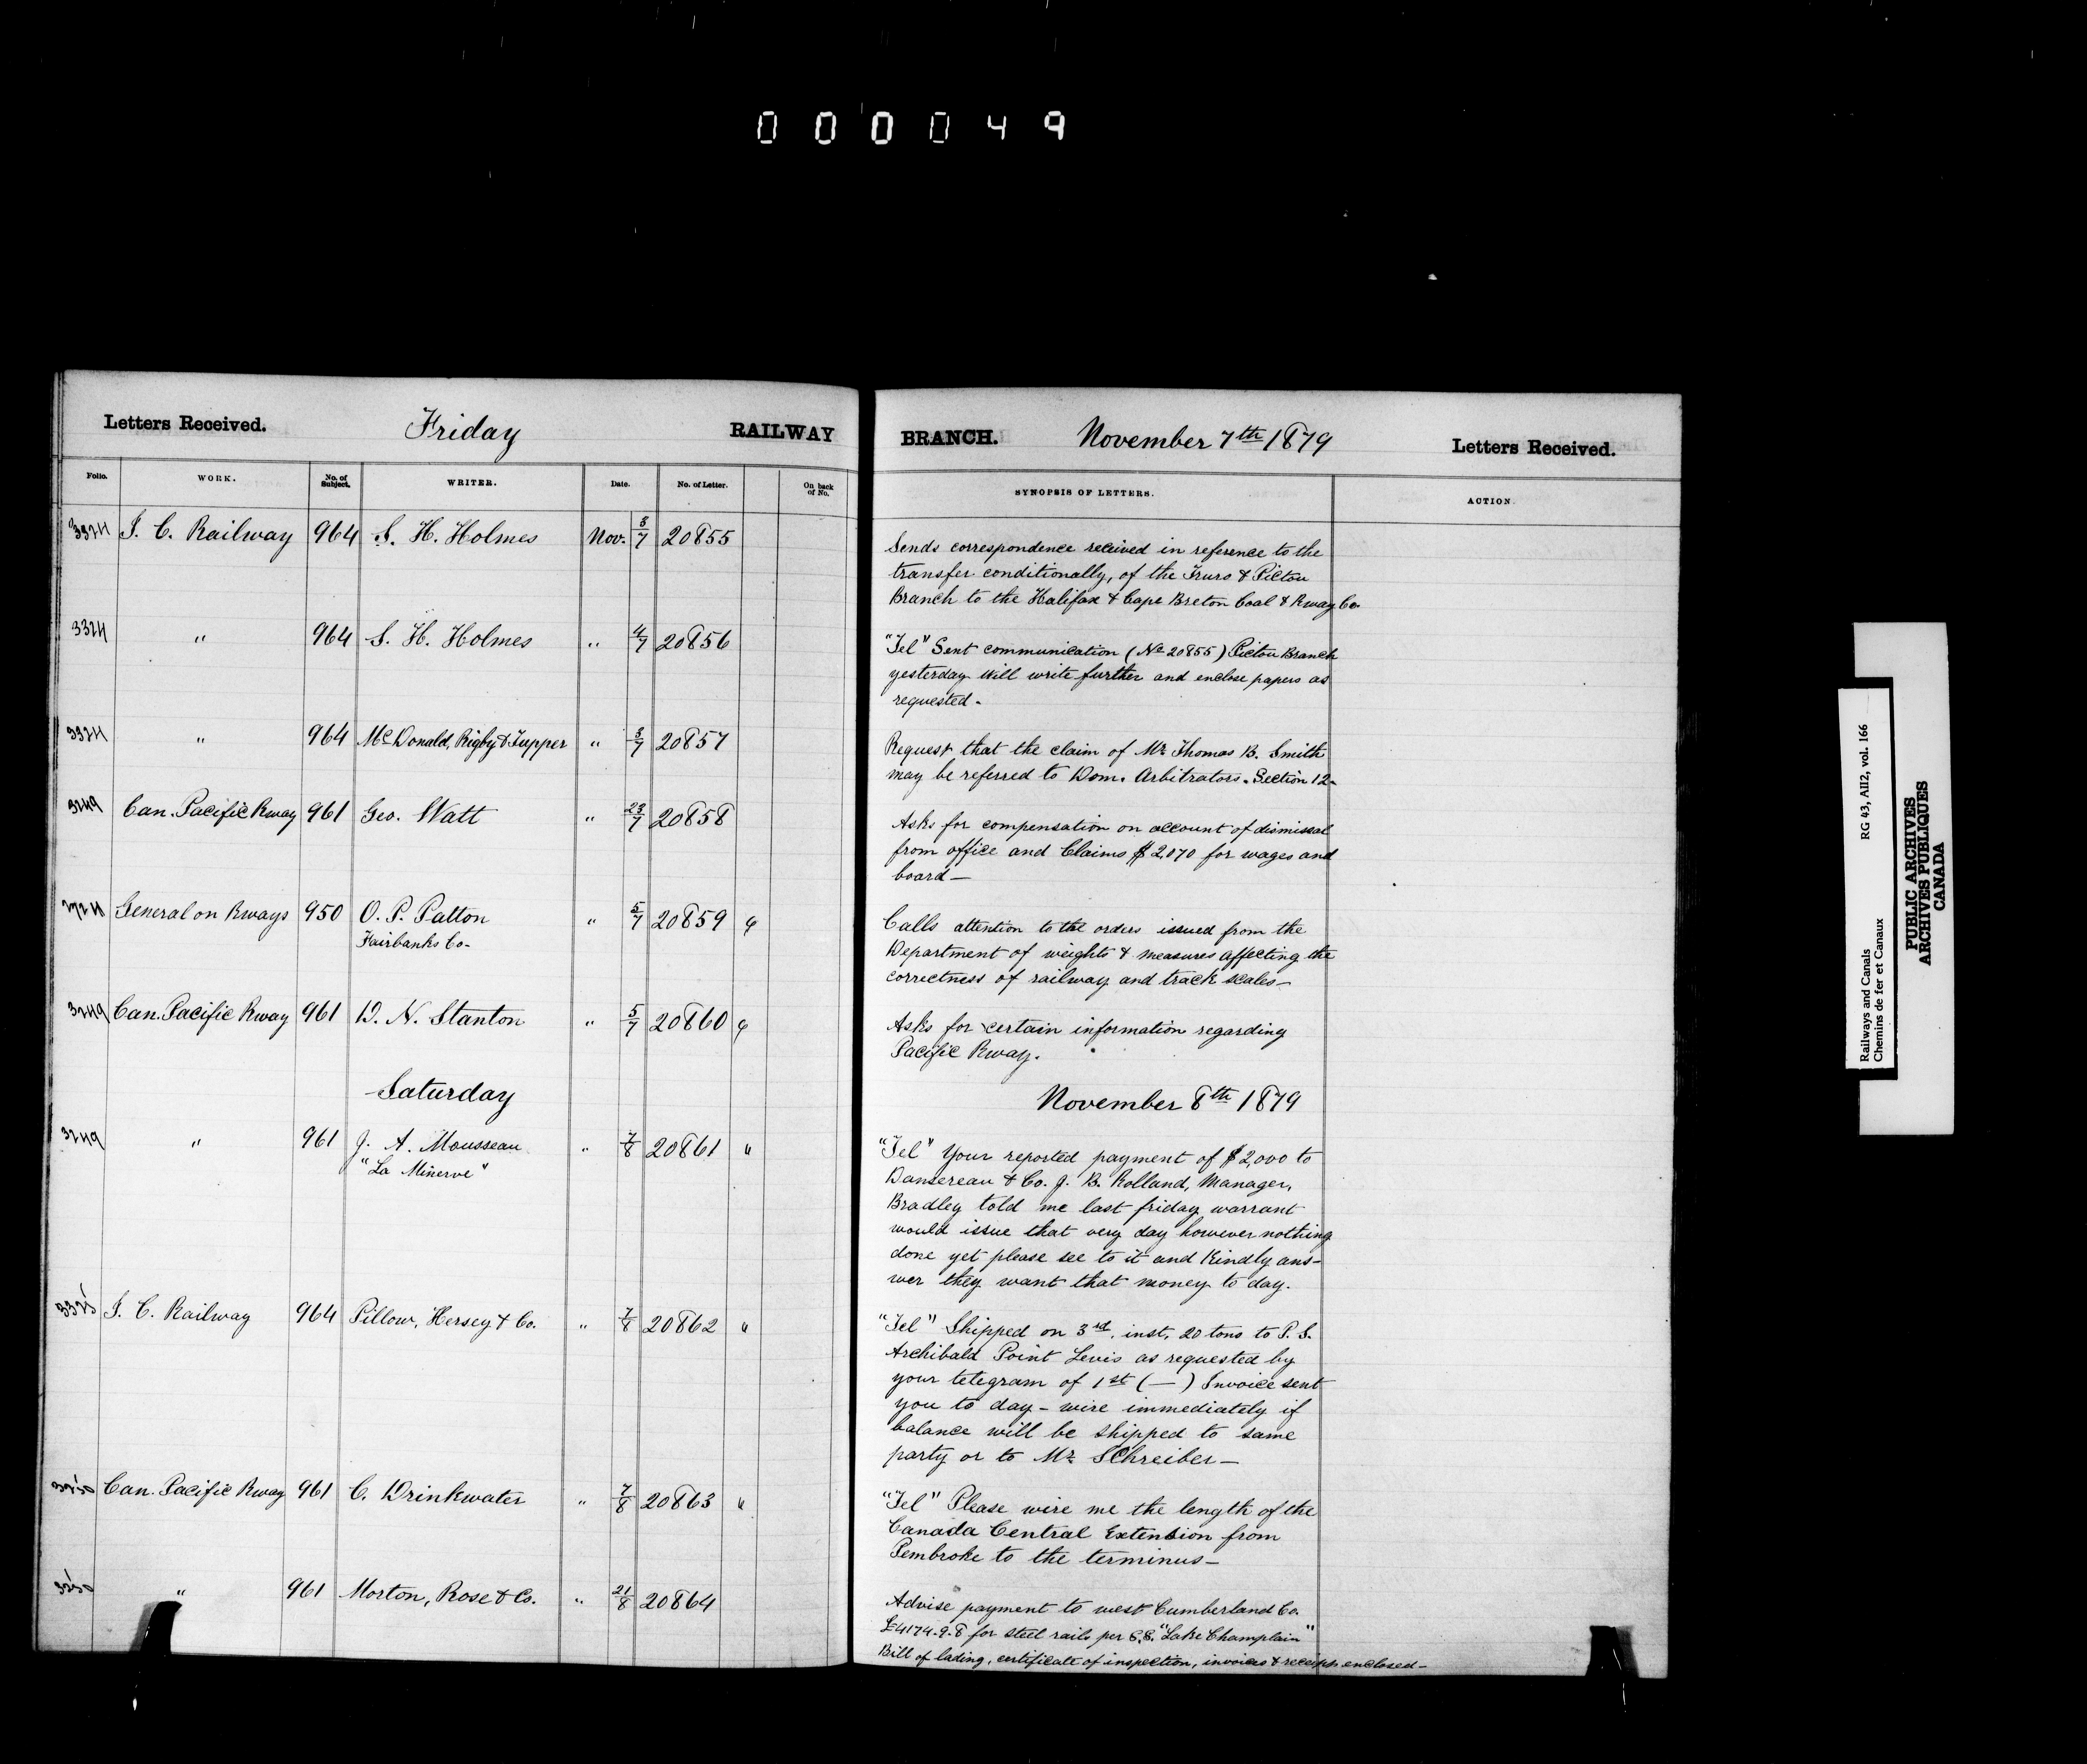 000049
Letters Received. Friday RAILWAY
Folio. WORK. No. of Subject. WRITER. Date. No. of Letter. On back of No.
3324 I. C. Railway 964 S. H. Holmes Nov. 3/7 20855
3324 " 964 S. H. Holmes " 4/7 20856
3324 " 964 McDonald, Rigby & Tupper " 3/7 20857
3249 Can. Pacific Rway 961 Geo. Watt " 23/7 20858
General on Rways 950 O. P. Patton " 5/7 20859
Fairbanks Co-
3249 Can. Pacific Rway 961 D. N. Stanton " 5/7 20860
Saturday
3249 " 961 J. A. Mousseau " 7/8 20861 "
"La Minerve"
3325 I. C. Railway 964 Pillow, Hersey & Co. " 7/8 20862 "
3250 Can. Pacific Rway 961 C. Drinkwater " 7/8 20863 "
3250 " 961 Morton, Rose & Co. " 21/8 20864
BRANCH. November 7th 1879 Letters Received.
SYNOPSIS OF LETTERS. ACTION.
Sends correspondence received in reference to the
transfer conditionally, of the Truro & Pictou
Branch to the Halifax & Cape Breton Coal & Rway Co.
"Tel" Sent communication (No 20855) Pictou Branch
yesterday will write further and enclose papers as
requested -
Request that the claim of Mr Thomas B. Smith
may be referred to Dom. Arbitrators. Section 12-
Asks for compensation on account of dismissal
from office and Claims $2,070 for wages and
board —
Calls attention to the orders issued from the
Department of weights & measures affecting the
correctness of railway and track scales —
Asks for certain information regarding
Pacific Rway.
November 8th 1879
"Tel" Your reported payment of $2,000 to
Dansereau & Co. J. B. Rolland, Manager,
Bradley told me last friday warrant
would issue that very day however nothing
done yet please see to it and Kindly ans-
wer they want that money to day.
"Tel" Shipped on 3rd. inst. 20 tons to P. S.
Archibald Point Levis as requested by
your telegram of 1st (—) Invoice sent
you to day - wire immediately if
balance will be shipped to same
party or to Mr Schreiber —
"Tel" Please wire me the length of the
Canada Central Extension from
Pembroke to the terminus —
Advise payment to west Cumberland Co.
£4174.9.8 for steel rails per S.S. "Lake Champlain"
Bill of lading, certificate of inspection, invoices & receipts enclosed —
Railways and Canals RG 43, AII2, vol. 166
Chemins de fer et Canaux
PUBLIC ARCHIVES
ARCHIVES PUBLIQUES
CANADA